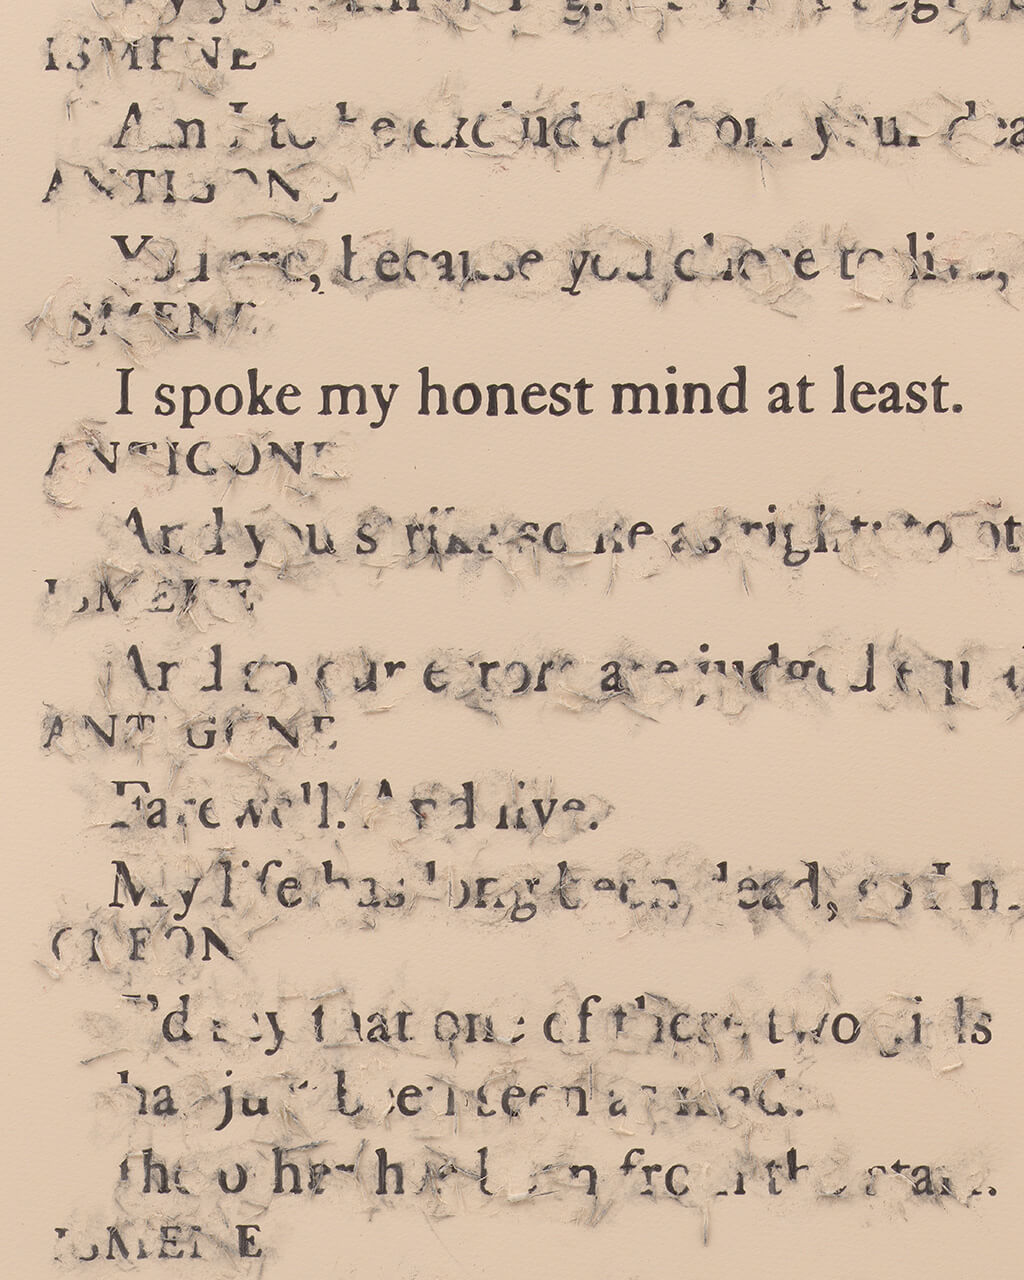 ISMENE
Am I to be excluded from your
ANTIGONE
You are, because you chose to live,
ISMENE
I spoke my honest mind at least.
ANTIGONE
And you strike some as right, to
ISMENE
And so our errors are judged
ANTIGONE
Farewell. And live.
My life has long been dead, so I
CREON
I'd say that one of these two girls
has just been seen as mad:
the other has been from the start.
ISMENE